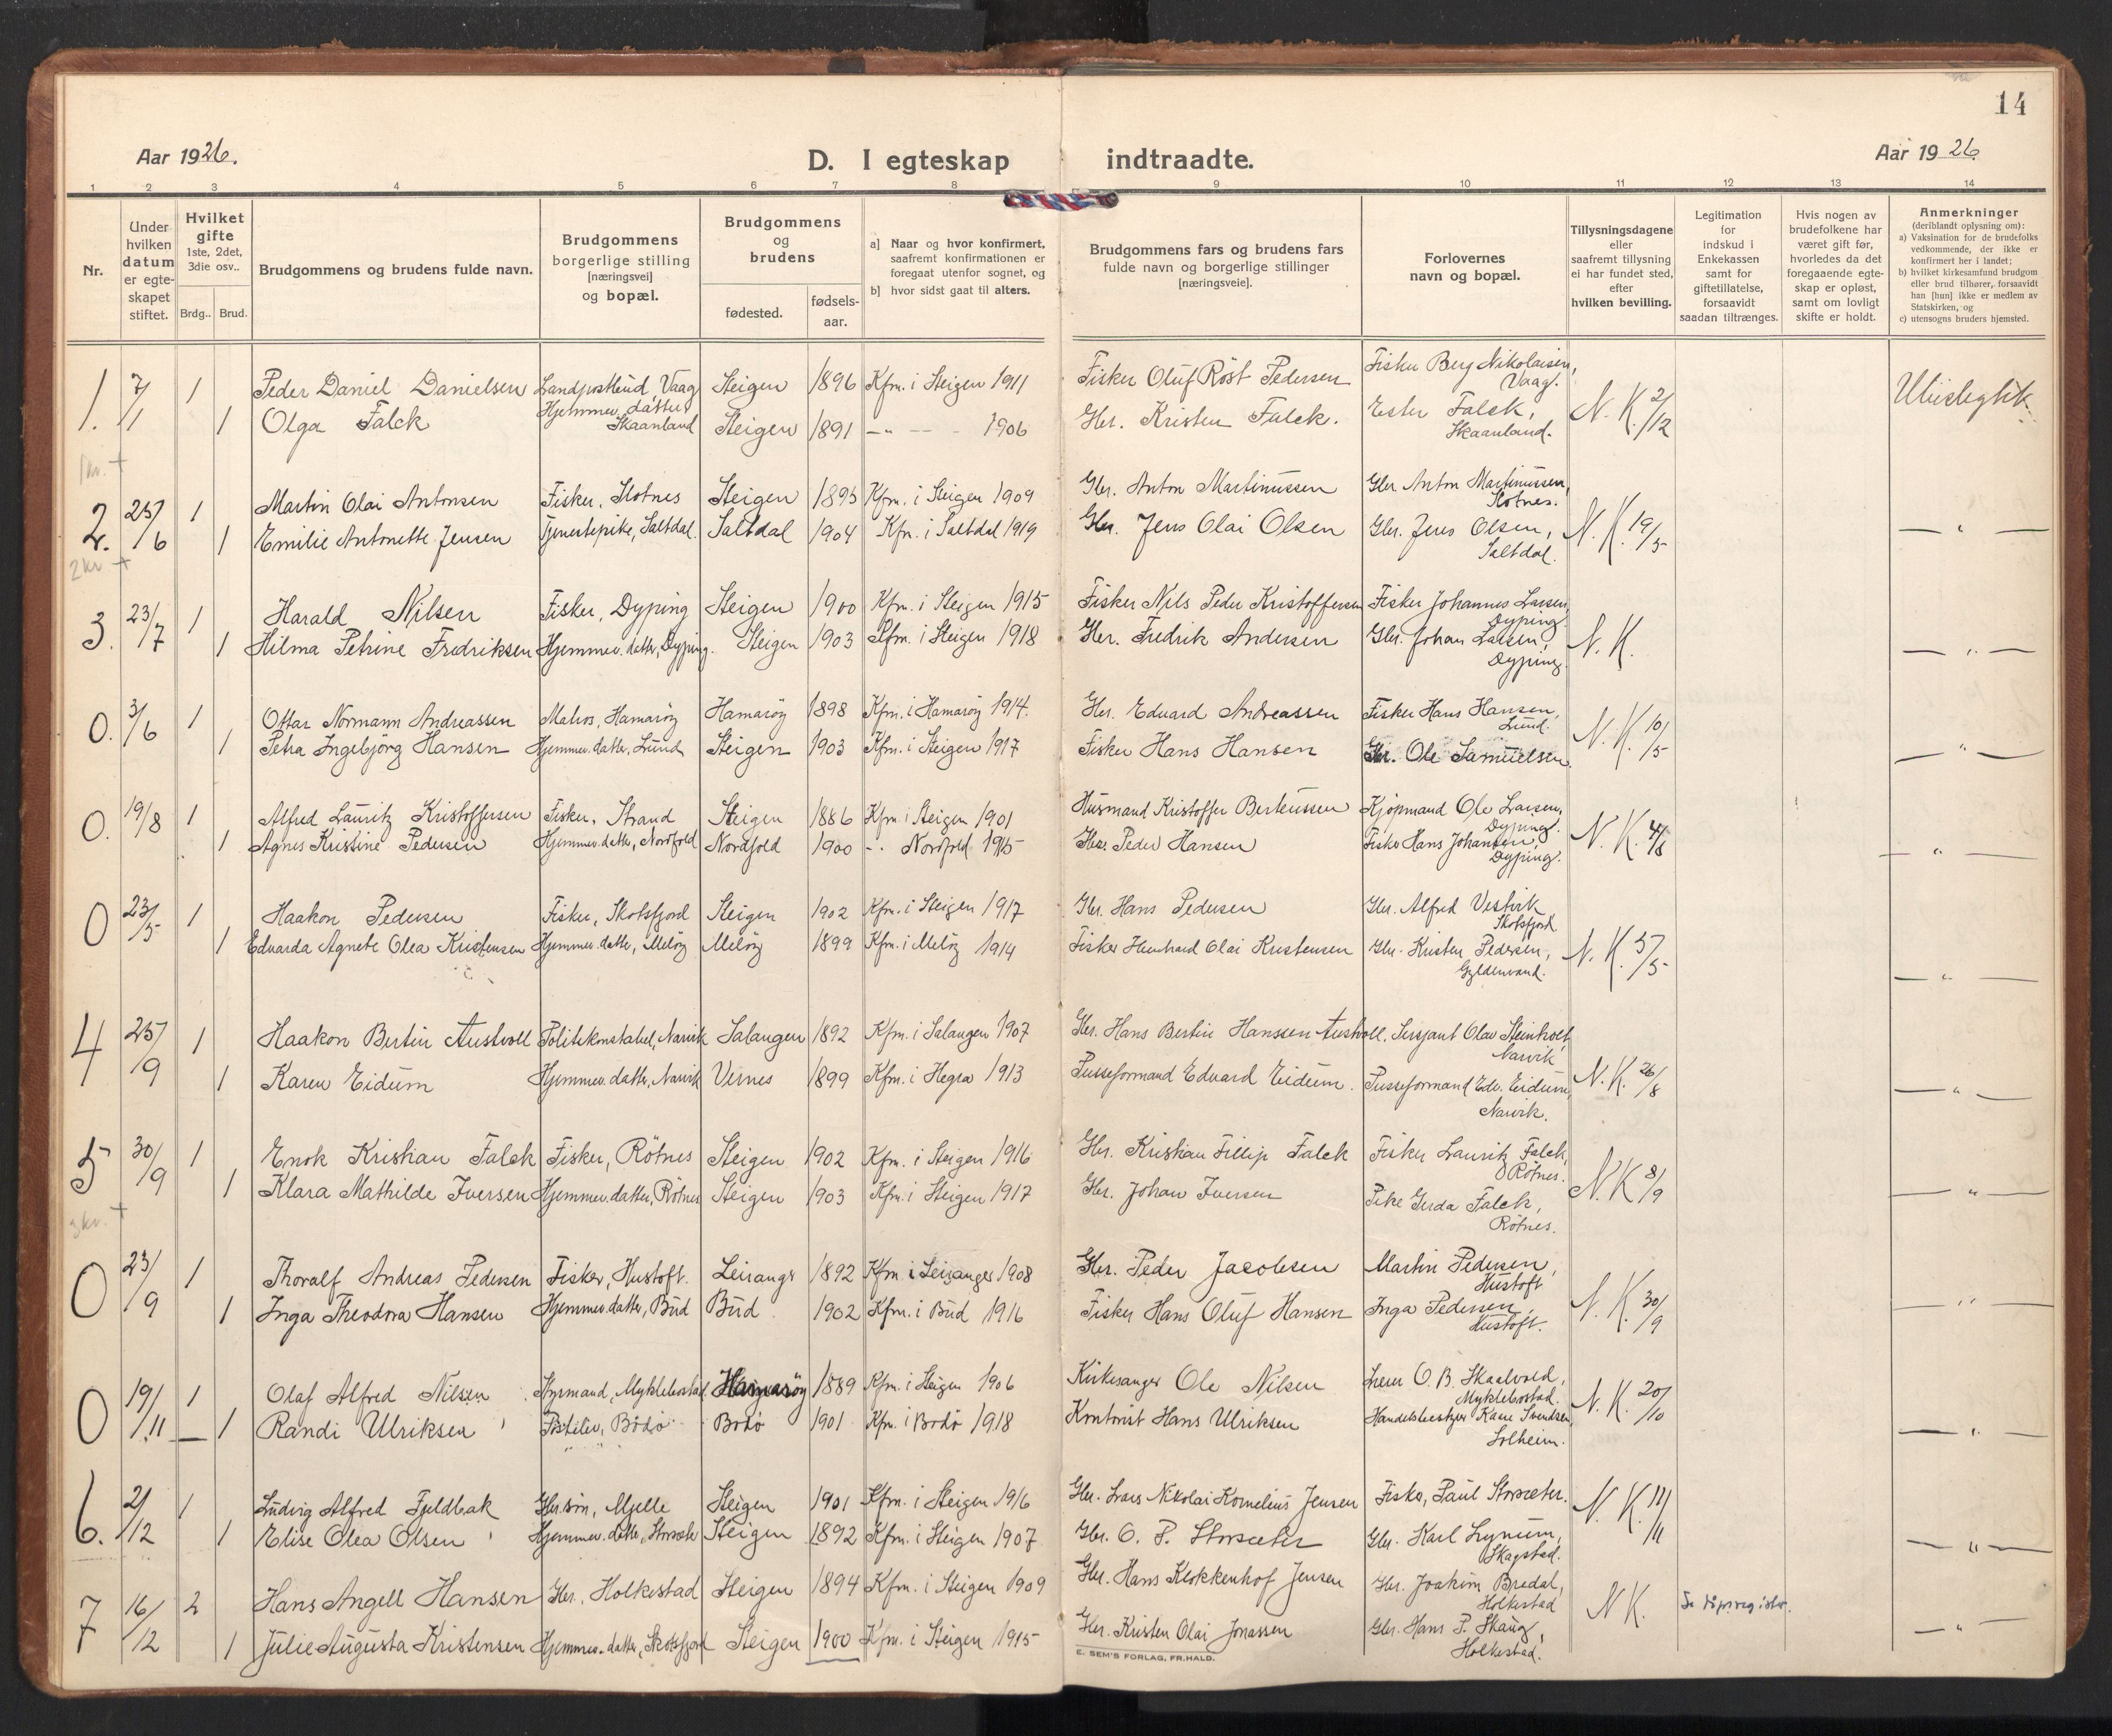 14
Aar 1926. D. I egteskap indtraadte. Aar 1926.
1 2 3 4 5 6 7 8 9 10 11 12 13 14
Nr.
Under hvilken datum er egte-skapet stiftet.
Hvilket gifte 1ste, 2det, 3die osv..
Brdg.. Brud.
Brudgommens og brudens fulde navn.
Brudgommens borgerlige stilling [næringsvei] og bopæl.
Brudgommens og brudens
fødested. fødsels-aar.
a] Naar og hvor konfirmert, saafremt konfirmationen er foregaat utenfor sognet, og
b] hvor sidst gaat til alters.
Brudgommens fars og brudens fars fulde navn og borgerlige stillinger [næringsveie].
Forlovernes navn og bopæl.
Tillysningsdagene eller saafremt tillysning ei har fundet sted, efter hvilken bevilling.
Legitimation for indskud i Enkekassen samt for giftetillatelse, forsaavidt saadan tiltrænges.
Hvis nogen av brudefolkene har været gift før, hvorledes da det foregaaende egte-skap er opløst, samt om lovligt skifte er holdt.
Anmerkninger (deriblandt oplysning om):
a) Vaksination for de brudefolks vedkommende, der ikke er konfirmert her i landet;
b) hvilket kirkesamfund brudgom eller brud tilhører, forsaavidt han [hun] ikke er medlem av Statskirken, og
c) utensogns bruders hjemsted.
1. 7/1 1 Peder Daniel Danielsen Landpostbud, Vaag Steigen 1896 Kfm. i Steigen 1911 Fisker Oluf Røst Pedersen Fisker Berg Nikolaisen, Vaag. N. K. 2/12
1 Olga Falck Hjemmev. datter Skaanland Steigen 1891 — " — 1906 Gbr. Kristen Falck. Ester Falck, Skaanland.
1 kr. +
2. 25/6 1 Martin Olai Antonsen Fisker, Slotnes Steigen 1895 Kfm. i Steigen 1909 Gbr. Anton Martinussen Gbr. Anton Martinussen, Slotnes. N. K. 19/5 — " —
1 Emilie Antonette Jensen Tjenestepike, Saltdal. Saltdal 1904 Kfm. i Saltdal 1919 Gbr. Jens Olai Olsen Gbr. Jens Olsen, Saltdal.
2 kr +
3. 23/7 1 Harald Nilsen Fisker, Dyping Steigen 1900 Kfm. i Steigen 1915 Fisker Nils Peder Kristoffersen Fisker Johannes Larsen, Dyping N. K. — " —
1 Hilma Petrine Fredriksen Hjemmev. datter, Dyping. Steigen 1903 Kfm. i Steigen 1918 Gbr. Fredrik Andersen Gbr. Johan Larsen, Dyping.
0. 3/6 1 Ottar Normann Andreassen Matros, Hamarøy Hamarøy 1898 Kfm. i Hamarøy 1914. Gbr. Edvard Andreassen Fisker Hans Hansen, Lund. N. K. 10/5
1 Petra Ingebjørg Hansen Hjemmev. datter, Lund Steigen 1903 Kfm. i Steigen 1917 Fisker Hans Hansen Gbr. Ole Samuelsen. — " —
0. 19/8 1 Alfred Lauritz Kristoffersen Fisker, Strand Steigen 1886 Kfm. i Steigen 1901 Husmand Kristoffer Berteussen Kjøpmand Ole Larsen, Dyping. N. K. 4/8
1 Agnes Kristine Pedersen Hjemmev. datter, Nordfold Nordfold 1900 -". Nordfold 1915 Gbr. Peder Hansen Fisker Hans Johansen, Dyping. — " —
0 23/5 1 Haakon Pedersen Fisker, Skotsfjord Steigen 1902 Kfm. i Steigen 1917 Gbr. Hans Pedersen Gbr. Alfred Vestvik Skotsfjord N. K. 5/5
1 Edvarda Agnete Olea Kristensen Hjemmev. datter, Meløy Meløy 1899 Kfm. i Meløy 1914 Fisker Olai Kristensen Gbr. Kristen Pedersen, Gyldenvand. — " —
4 25/9 1 Haakon Bertin Austvoll Politikonstabel, Narvik Salangen 1892 Kfm. i Salangen 1907 Gbr. Hans Bertin Hanssen Austvoll. Sersjant Olav Steinholt Narvik N. K. 26/8
1 Karen Eidum Hjemmev. datter, Narvik Vernes 1899 Kfm. i Hegra 1913 Pusseformand Edvard Eidum. Pusseformand Edv. Eidum, Narvik. — " —
5 30/9 1 Enok Kristian Falck Fisker, Røtnes Steigen 1902 Kfm. i Steigen 1916 Gbr. Kristian Fillip Falck Fisker Lauritz Falck, Røtnes. N. K 8/9
1 Klara Mathilde Iversen Hjemmev. datter, Røtnes Steigen 1903 Kfm. i Steigen 1917 Gbr. Johan Iversen Pike Gerda Falck, Røtnes. — " —
3 kr. +
0 23/9 1 Thoralf Andreas Pedersen Fisker, Hustoft. Leiranger 1892 Kfm. i Leiranger 1908 Gbr. Peder Jacobsen Martin Pedersen, Hustoft N. K. 30/9
1 Inga Theodora Hansen Hjemmev. datter, Bud Bud 1902 Kfm. i Bud 1916 Fisker Hans Oluf Hansen Inga Pedersen, Hustoft. — " —
0 19/11 1 Olaf Alfred Nilsen Styrmand, Myklebostad Hamarøy 1889 Kfm. i Steigen 1906 Kirkesanger Ole Nilsen Lærer O. B. Skaalvold, Myklebostad. N. K. 20/10
1 Randi Ulriksen Bodø Bodø 1901 Kfm. i Bodø 1918 Kontorist Hans Ulriksen Handelsbestyrer Kaare Svendsen, Solheim. — " —
6. 2/12 1 Ludvig Alfred Fjeldbak Gbr. søn, Mjelle Steigen 1901 Kfm. i Steigen 1916 Gbr. Lars Nikolai Kornelius Jensen Fisker, Paul Storsæter. N. K. 11/11
1 Elise Olea Olsen Hjemmev. datter, Storsæter Steigen 1892 Kfm. i Steigen 1907 Gbr. O. P. Storsæter Gbr. Karl Lynum, Skagstad. — " —
7 16/12 2 Hans Angell Hansen Gbr. Holkestad Steigen 1894 Kfm. i Steigen 1909 Gbr. Hans Klokkenhof Jensen Gbr. Joakim Bredal, Holkestad N K. Se
1 Julie Augusta Kristensen Hjemmev. datter, Skotsfjord Steigen 1900 Kfm. i Steigen 1915 Gbr. Kristen Olai Jonassen Gbr. Hans P. Skaug, Holkestad. — " —
E. SEM'S FORLAG, FR.HALD.